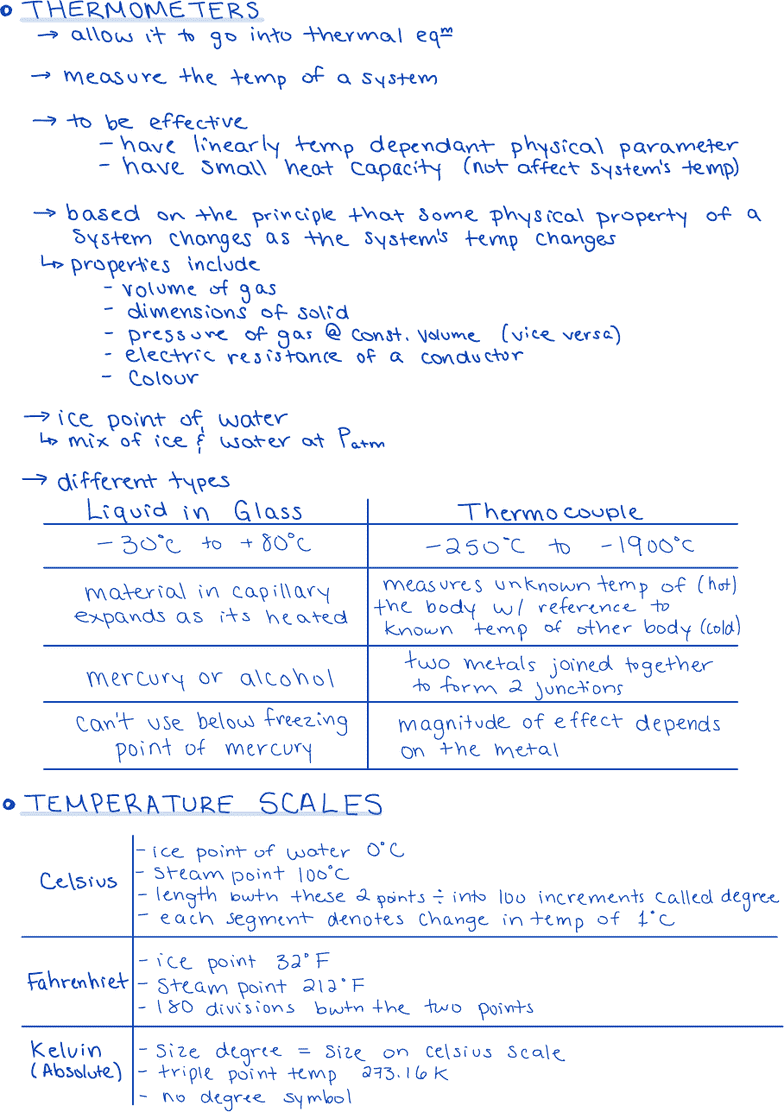 • THERMOMETERS
→ allow it to go into thermal eqᵐ
→ measure the temp of a system
→ to be effective
- have linearly temp dependant physical parameter
- have small heat capacity (not affect system's temp)
→ based on the principle that some physical property of a
system changes as the system's temp changes
↳ properties include
- volume of gas
- dimensions of solid
- pressure of gas @ const. volume (vice versa)
- electric resistance of a conductor
- colour
→ ice point of water
↳ mix of ice & water at Patm
→ different types
Liquid in Glass
Thermocouple
-30°C to +80°C
-250°C to -1900°C
material in capillary
expands as its heated
measures unknown temp of (hot)
the body w/ reference to
known temp of other body (cold)
mercury or alcohol
two metals joined together
to form 2 junctions
can't use below freezing
point of mercury
magnitude of effect depends
on the metal
• TEMPERATURE SCALES
Celsius
- ice point of water 0°C
- steam point 100°C
- length bwtn these 2 points ÷ into 100 increments called degree
- each segment denotes change in temp of 1°C
Fahrenhiet
- ice point 32°F
- steam point 212°F
- 180 divisions bwtn the two points
Kelvin
(Absolute)
- size degree = size on celsius scale
- triple point temp 273.16K
- no degree symbol